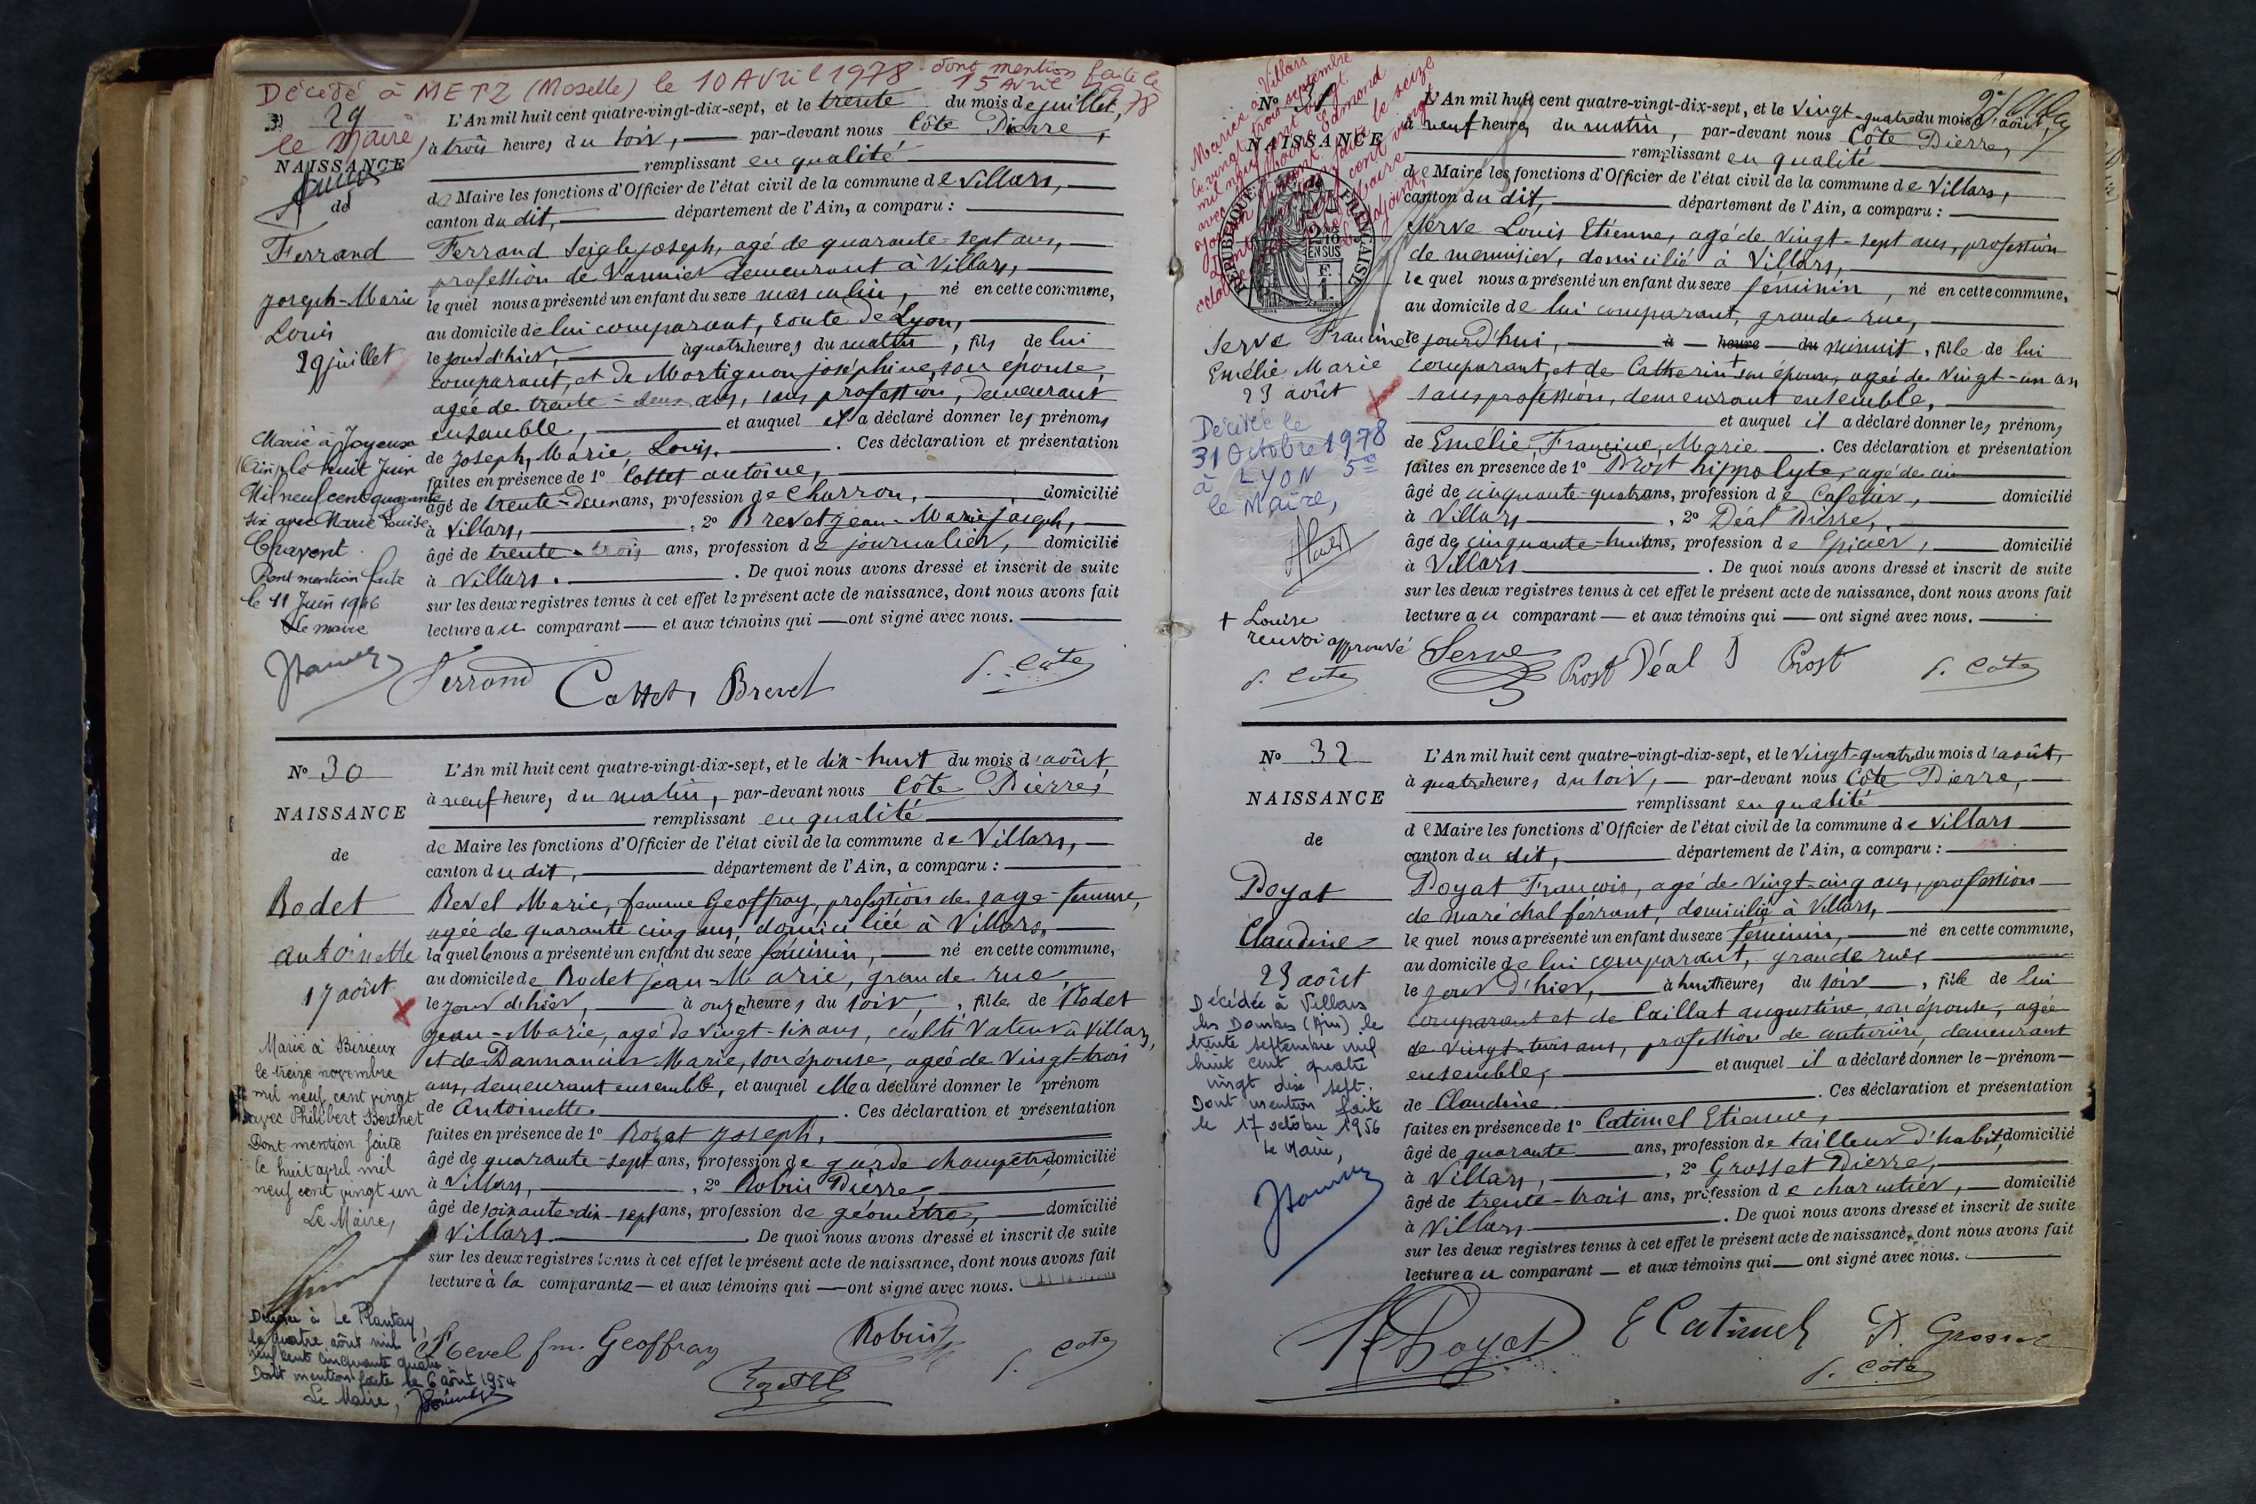 Décédé à METZ (Moselle) le 10 Avril 1978 dont mention faite le
15 Avril 1978
29
le Maire
NAISSANCE
de
Ferrand
Joseph-Marie
Louis
29 juillet
Marié à Joyeux
(Ain) le huit Juin
Mil neuf cent quarante
six avec Marie Louise
Chavent
Dont mention faite
le 11 Juin 1946
Le maire
L'An mil huit cent quatre-vingt-dix-sept, et le trente du mois de juillet,
à trois heures du soir, par-devant nous Côte Pierre,
remplissant en qualité
de Maire les fonctions d'Officier de l'état civil de la commune de Villars,
canton du dit, département de l'Ain, a comparu :
Ferrand Seigle joseph, agé de quarante-sept ans,
profession de Vannier demeurant à Villars,
le quel nous a présenté un enfant du sexe masculin, né en cette commune,
au domicile de lui comparant, route de Lyon,
le jour d'hier, à quatre heures du matin, fils de lui
comparant, et de Mortignon joséphine, son épouse,
agée de trente-deux ans, sans profession, demeurant
ensemble, et auquel il a déclaré donner les prénoms
de Joseph, Marie, Louis. Ces déclaration et présentation
faites en présence de 1° Cottet antoine,
âgé de trente-deux ans, profession de Charron, domicilié
à Villars, 2° Brevet jean-Marie joseph,
âgé de trente-trois ans, profession de journalier, domicilié
à Villars. De quoi nous avons dressé et inscrit de suite
sur les deux registres tenus à cet effet le présent acte de naissance, dont nous avons fait
lecture au comparant et aux témoins qui ont signé avec nous.
Ferrand Cottet, Brevet P. Côte
N° 30
NAISSANCE
de
Rodet
antoinette
17 août
Marié à Birieux
le treize novembre
mil neuf cent vingt
avec Philibert Berthet
Dont mention faite
le huit avril mil
neuf cent vingt un
Le Maire,
Décédée à Le Plantay,
le quatre août mil
neuf cent cinquante quatre
Dont mention faite le 6 août 1954
Le Maire,
L'An mil huit cent quatre-vingt-dix-sept, et le dix-huit du mois d'août,
à neuf heures du matin, par-devant nous Côte Pierre,
remplissant en qualité
de Maire les fonctions d'Officier de l'état civil de la commune de Villars,
canton du dit, département de l'Ain, a comparu :
Revel Marie, femme Geoffray, profession de sage-femme,
agée de quarante cinq ans, domiciliée à Villars,
laquelle nous a présenté un enfant du sexe féminin, né en cette commune,
au domicile de Rodet jean-Marie, grande rue,
le jour d'hier, à onze heures du soir, fille de Rodet
jean-Marie, agé de vingt-six ans, cultivateur à Villars,
et de Dannancier Marie, son épouse, agée de vingt-trois
ans, demeurant ensemble, et auquel elle a déclaré donner le prénom
de Antoinette. Ces déclaration et présentation
faites en présence de 1° Rozat joseph,
âgé de quarante-sept ans, profession de garde champêtre, domicilié
à Villars, 2° Robin Pierre,
âgé de soixante-dix-sept ans, profession de géomètre, domicilié
à Villars. De quoi nous avons dressé et inscrit de suite
sur les deux registres tenus à cet effet le présent acte de naissance, dont nous avons fait
lecture à la comparante et aux témoins qui ont signé avec nous.
Revel fm. Geoffray Robin P. Côte
N° 31
NAISSANCE
Mariée à Villars
le vingt trois septembre
RÉPUBLIQUE FRANÇAISE
EN SUS
Serve Francine
Emélie Marie
23 août
Décédée le
31 Octobre 1978
à LYON 5e
le Maire,
+ Louise
renvoi approuvé
P. Côte
L'An mil huit cent quatre-vingt-dix-sept, et le vingt-quatre du mois d'août,
à neuf heures du matin, par-devant nous Côte Pierre,
remplissant en qualité
de Maire les fonctions d'Officier de l'état civil de la commune de Villars,
canton du dit, département de l'Ain, a comparu :
Serve Louis Etienne, agé de vingt-sept ans, profession
de menuisier, domicilié à Villars,
le quel nous a présenté un enfant du sexe féminin, né en cette commune,
au domicile de lui comparant, grande rue,
le jourd'hui, à heure du minuit, fille de lui
comparant, et de Catherin + son épouse, agée de vingt-un an
sans profession, demeurant ensemble,
et auquel il a déclaré donner les prénoms
de Emélie, Francine, Marie. Ces déclaration et présentation
faites en présence de 1° Prost hippolyte, agé de cin
âgé de cinquante-quatre ans, profession de Cafetier, domicilié
à Villars, 2° Déal Pierre,
âgé de cinquante-huit ans, profession de Epicier, domicilié
à Villars. De quoi nous avons dressé et inscrit de suite
sur les deux registres tenus à cet effet le présent acte de naissance, dont nous avons fait
lecture au comparant et aux témoins qui ont signé avec nous.
Serve Prost Déal P Prost P. Côte
N° 32
NAISSANCE
de
Poyat
Claudine
23 août
Décédée à Villars
les Dombes (Ain) le
trente septembre mil
huit cent quatre
vingt dix sept.
Dont mention faite
le 17 octobre 1956
Le Maire,
L'An mil huit cent quatre-vingt-dix-sept, et le vingt-quatre du mois d'août,
à quatre heures du soir, par-devant nous Côte Pierre,
remplissant en qualité
de Maire les fonctions d'Officier de l'état civil de la commune de Villars
canton du dit, département de l'Ain, a comparu :
Poyat François, agé de vingt-cinq ans, profession
de maréchal ferrant, domicilié à Villars,
le quel nous a présenté un enfant du sexe féminin, né en cette commune,
au domicile de lui comparant, grande rue,
le jour d'hier, à huit heures du soir, fille de lui
comparant et de Caillat augustine, son épouse, agée
de vingt-trois ans, profession de couturière, demeurant
ensemble, et auquel il a déclaré donner le prénom
de Claudine. Ces déclaration et présentation
faites en présence de 1° Catimel Etienne,
âgé de quarante ans, profession de tailleur d'habits, domicilié
à Villars, 2° Grosset Pierre,
âgé de trente-trois ans, profession de charcutier, domicilié
à Villars. De quoi nous avons dressé et inscrit de suite
sur les deux registres tenus à cet effet le présent acte de naissance, dont nous avons fait
lecture au comparant et aux témoins qui ont signé avec nous.
Poyat E Catimel P Grosset
P. Côte